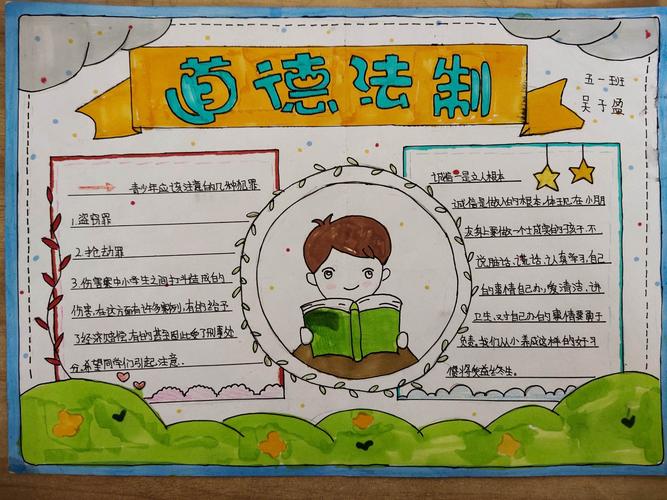 道德法制
五一班
吴子盈
青少年应该注意的几种犯罪
1.盗窃罪
2.抢劫罪
3.伤害案中小学生之间打斗造成的
伤害,在这方面有许多案例,有的给予
了经济赔偿,有的甚至因此受了刑事处
分.希望同学们引起.注意..
诚信一是立人根本
诚信是做人的根本,体现,在小朋
友身上要做一个士成实的子孩子,不
说脏话、谎话,认真学习,自己
的事情自己办,爱清洁、讲
卫生、对自己办的事情要勇于
负责.我们从小养成这样的好习
惯将受益终生.